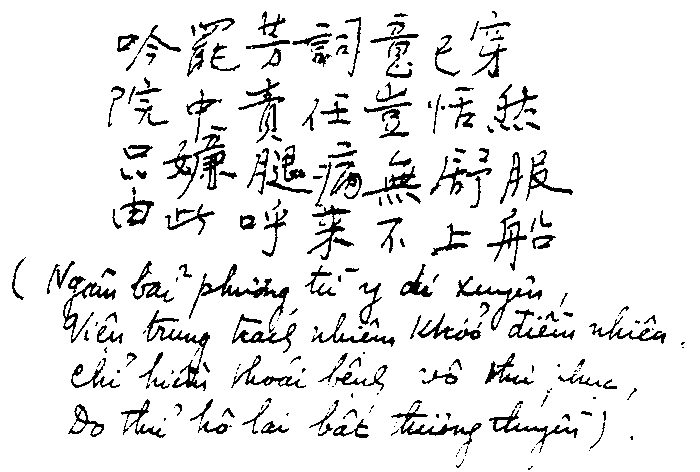 吟罷芳詞意已穿
院中責任豈恬然
只嫌腿痛無舒服
由此呼萊不上船
(Ngâm bãi phương từ ý dĩ xuyên,
Viện trung trách nhiệm khởi điềm nhiên.
Chỉ hiềm thoái bệnh vô thư phục,
Do thử hô lai bất thướng thuyền).